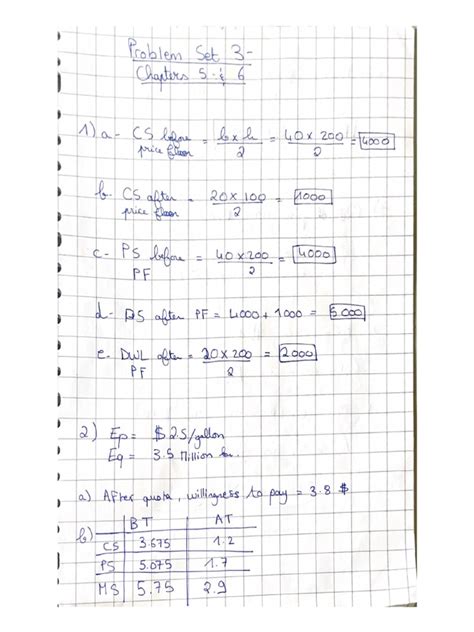 Problem Set 3-
Chapters 5 & 6
1) a- CS before price floor = b x h / 2 = 40 x 200 / 2 = 4000
b- CS after price floor = 20 x 100 / 2 = 1000
c- PS before PF = 40 x 200 / 2 = 4000
d- PS after PF = 4000 + 1000 = 5000
e- DWL after PF = 20 x 200 / 2 = 2000
2) Ep = $ 2.5/gallon
Eq = 3.5 Million
a) After quota, willingness to pay = 3.8 $
b) BT AT
CS 3.675 1.2
PS 5.075 1.7
MS 5.75 2.9